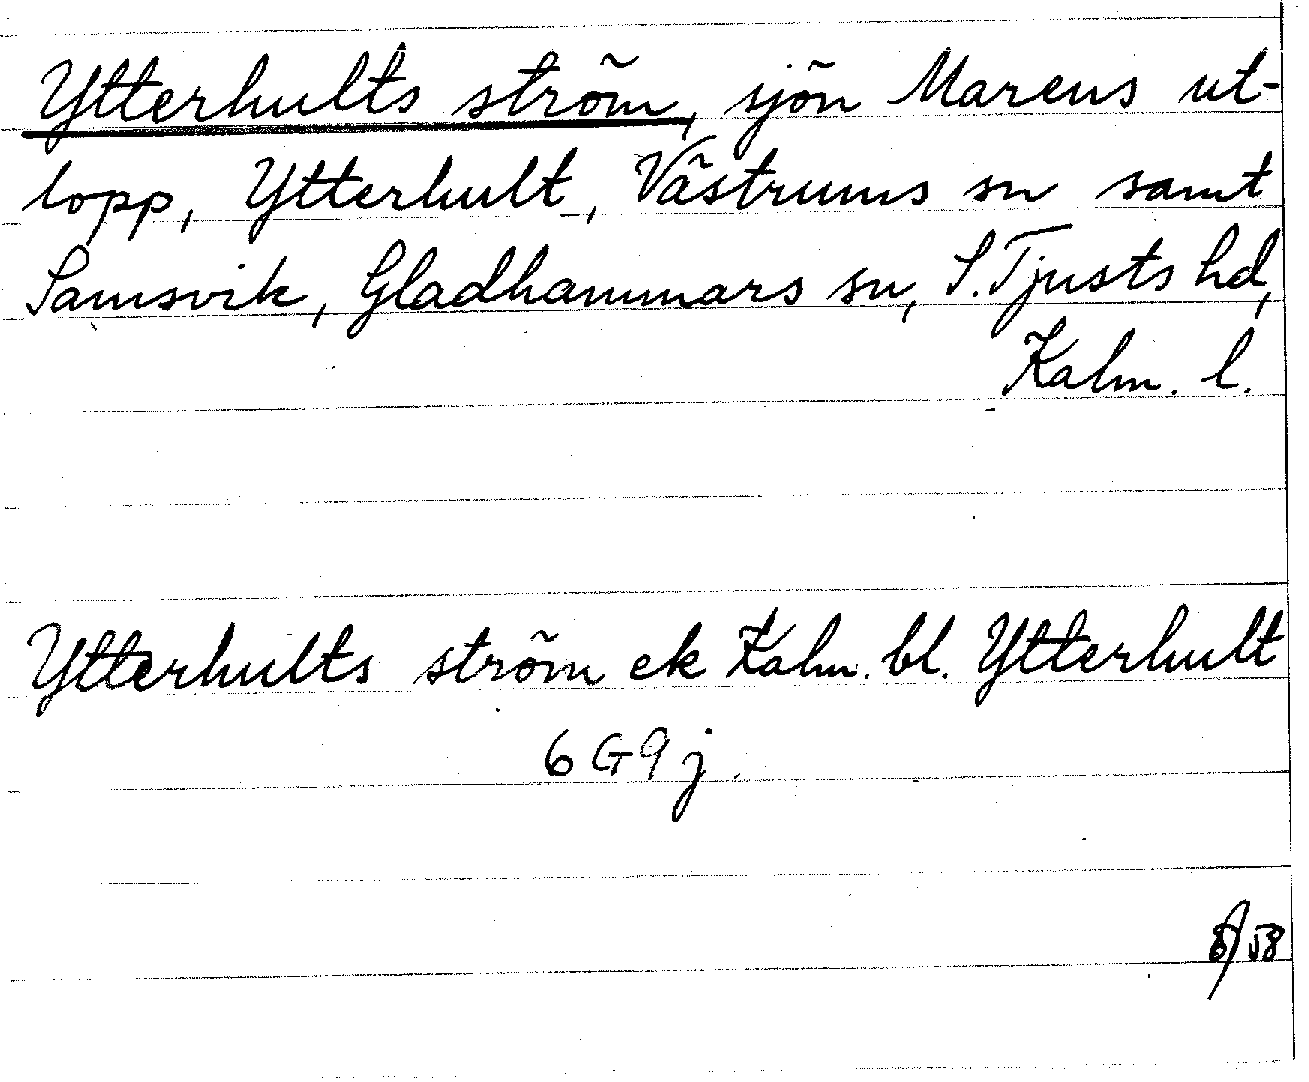 Ytterhults ström, sjön Marens ut-
lopp, Ytterhult, Västrums sn samt
Samsvik, Gladhammars sn, S. Tjusts hd,
Kalm. l.
Ytterhults ström ek Kalm. bl. Ytterhult
6G9j.
8/58